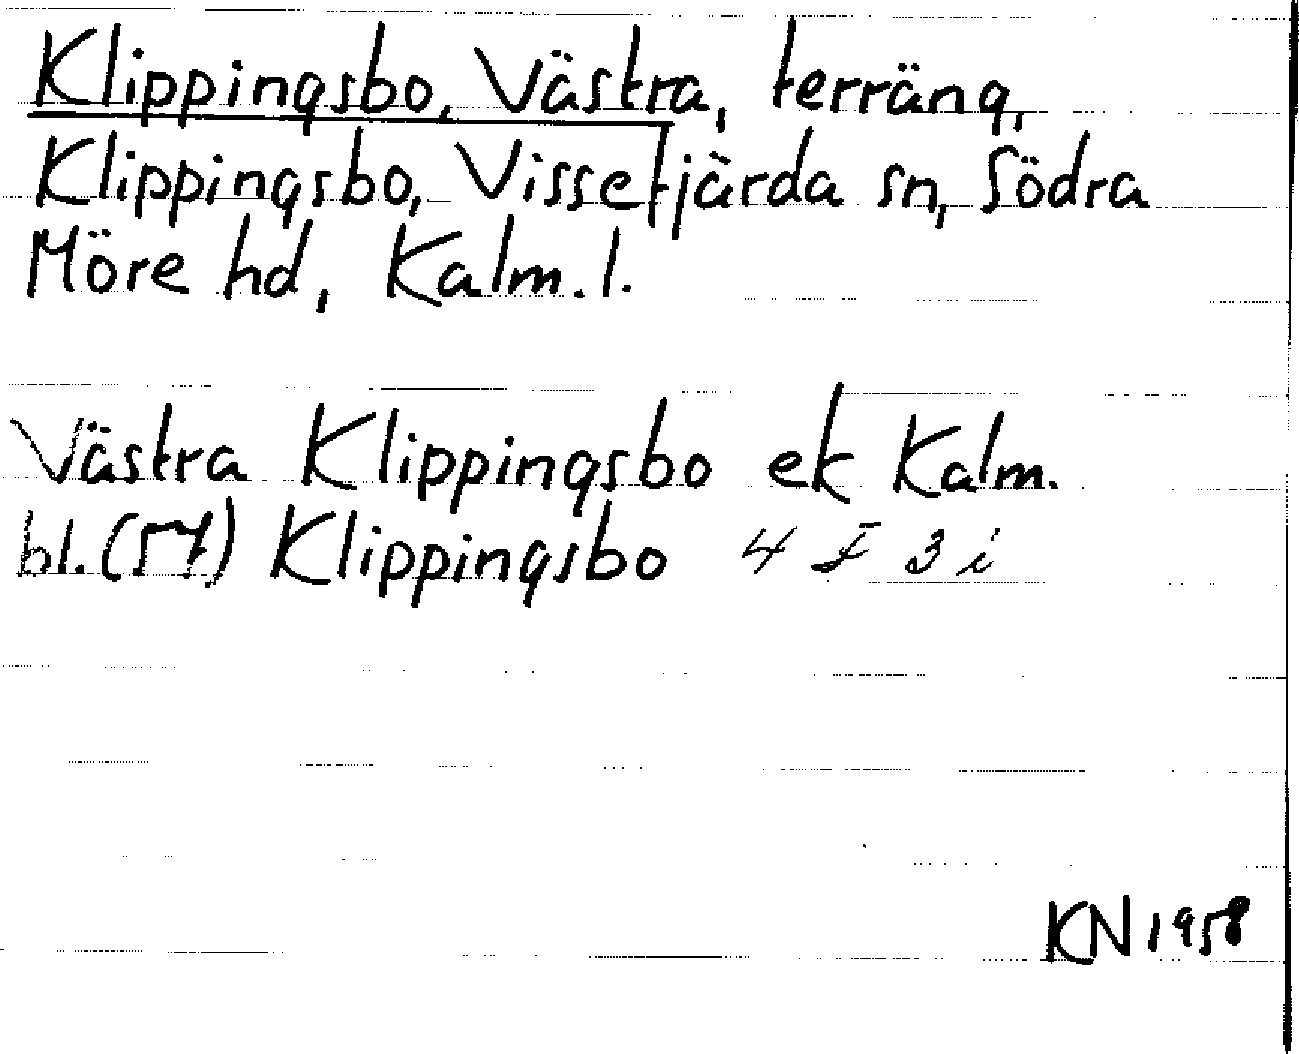 Klippingsbo, Västra, terräng,
Klippingsbo, Vissefjärda sn, Södra
Möre hd, Kalm. l.
Västra Klippingsbo ek Kalm.
bl. (57) Klippingsbo 4 F 3 i
KN 1958